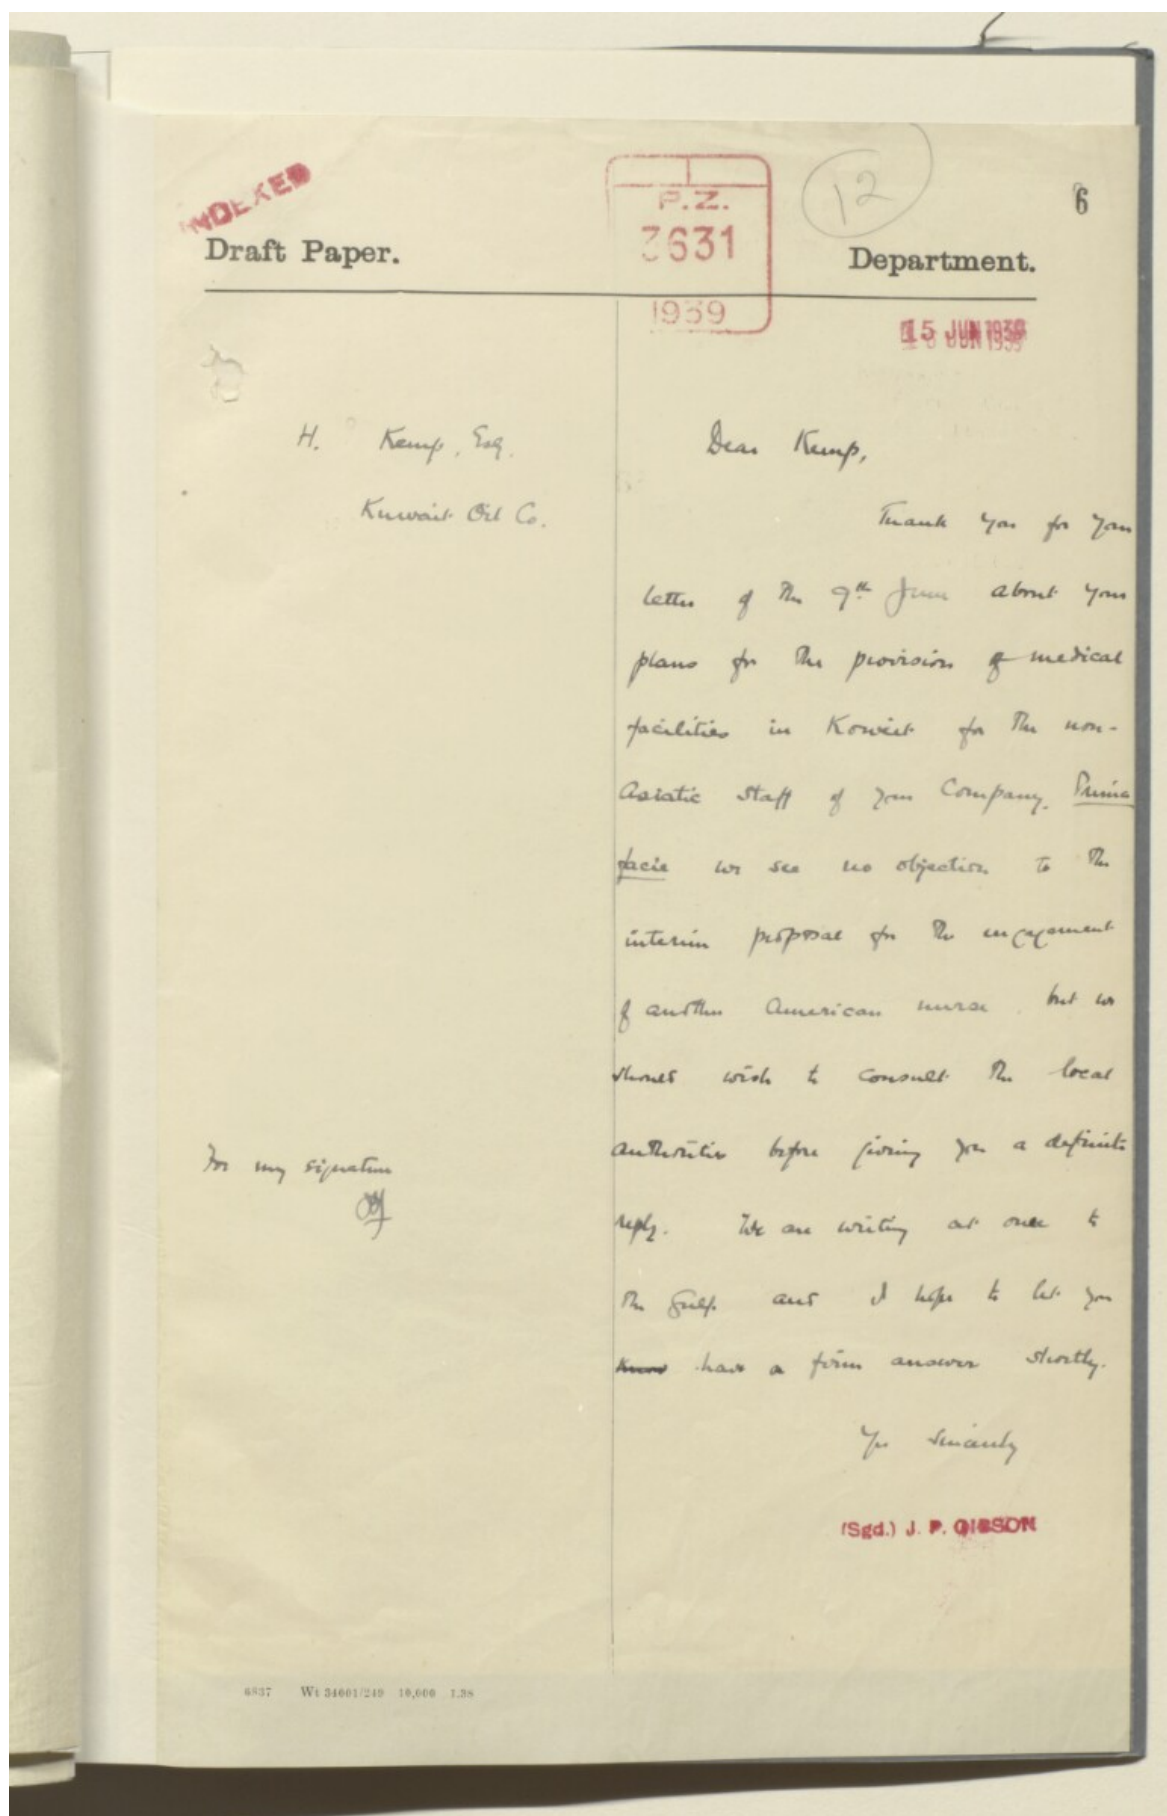 INDEXED
P.Z.
3631
1939
12
6
Draft Paper.
Department.
15 JUN 1939
H. Kemp, Esq.
Kuwait Oil Co.
Dear Kemp,
Thank you for your
letter of the 9th June about your
plans for the provision of medical
facilities in Koweit for the non-
Asiatic staff of your Company. Prima
facie we see no objection to the
interim proposal for the engagement
of another American nurse, but we
should wish to consult the local
authorities before giving you a definite
reply. We are writing at once to
the Gulf and I hope to let you
know have a firm answer shortly.
For my signature
Yrs Sincerely
(Sgd.) J. P. GIBSON
6837 Wt 34601/249 10,000 1.38